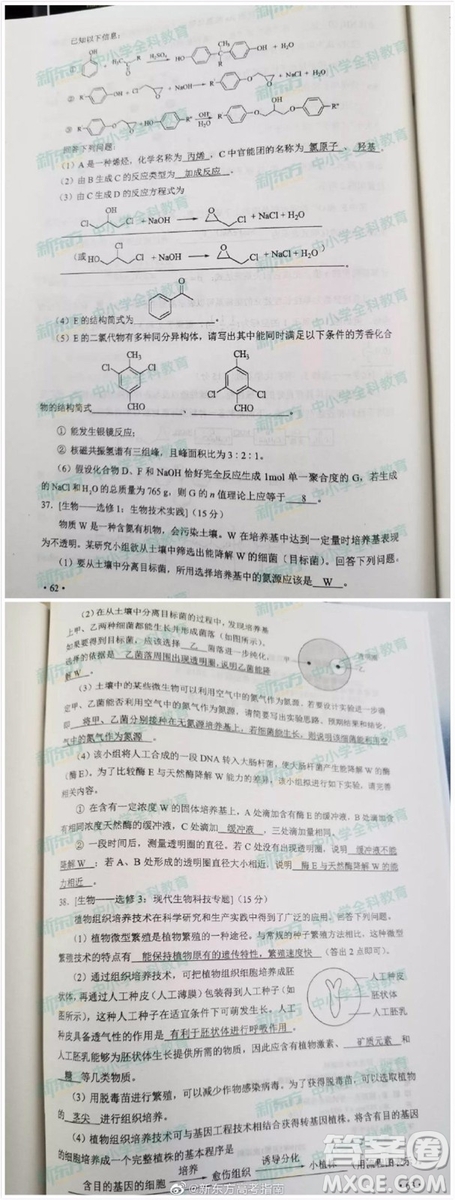 已知以下信息:
回答下列问题:
(1) A是一种烯烃,化学名称为 丙烯 ,C中官能团的名称为 氯原子 、 羟基 。
(2) 由B生成C的反应类型为 加成反应 。
(3) 由C生成D的反应方程式为
OH
Cl Cl + NaOH → O Cl + NaCl + H₂O
(或 HO Cl Cl + NaOH → O Cl + NaCl + H₂O )
O
(4) E的结构简式为 。
(5) E的二氯代物有多种同分异构体,请写出其中能同时满足以下条件的芳香化合
CH₃ CH₃
Cl Cl
Cl Cl
CHO CHO
物的结构简式 、 。
① 能发生银镜反应;
② 核磁共振氢谱有三组峰,且峰面积比为3:2:1。
(6) 假设化合物D、F和NaOH恰好完全反应生成1mol单一聚合度的G,若生成
的NaCl和H₂O的总质量为765 g,则G的n值理论上应等于 8 。
37. [生物——选修1:生物技术实践] (15分)
物质W是一种含氮有机物,会污染土壤。W在培养基中达到一定量时培养基表现
为不透明。某研究小组欲从土壤中筛选出能降解W的细菌(目标菌)。回答下列问题。
(1) 要从土壤中分离目标菌,所用选择培养基中的氮源应该是 W 。
· 62 ·
(2) 在从土壤中分离目标菌的过程中,发现培养基
上甲、乙两种细菌都能生长并形成菌落(如图所示)。
如果要得到目标菌,应该选择 乙 菌落进一步纯化,
选择的依据是 乙菌落周围出现透明圈,说明乙菌能降
解W 。
甲
透明圈
乙
(3) 土壤中的某些微生物可以利用空气中的氮气作为氮源。若要设计实验进一步确
定甲、乙菌能否利用空气中的氮气作为氮源,请简要写出实验思路、预期结果和结论,
即 将甲、乙菌分别接种在无氮源培养基上,若细菌能生长,则说明该细菌能利用空
气中的氮气作为氮源 。
(4) 该小组将人工合成的一段DNA转入大肠杆菌,使大肠杆菌产生能降解W的酶
(酶E)。为了比较酶E与天然酶降解W能力的差异,该小组拟进行如下实验,请完善
相关内容。
① 在含有一定浓度W的固体培养基上,A处滴加含有酶E的缓冲液,B处滴加含
有相同浓度天然酶的缓冲液,C处滴加 缓冲液 ,三处滴加量相同。
② 一段时间后,测量透明圈的直径。若C处没有出现透明圈,说明 缓冲液不能
降解W ;若A、B处形成的透明圈直径大小相近,说明 酶E与天然酶降解W的能
力相近 。
38. [生物——选修3:现代生物科技专题] (15分)
植物组织培养技术在科学研究和生产实践中得到了广泛的应用。回答下列问题。
(1) 植物微型繁殖是植物繁殖的一种途径。与常规的种子繁殖方法相比,这种微型
繁殖技术的特点有 能保持植物原有的遗传特性,繁殖速度快 (答出2点即可)。
(2) 通过组织培养技术,可把植物组织细胞培养成胚
状体,再通过人工种皮(人工薄膜)包装得到人工种子(如
图所示),这种人工种子在适宜条件下可萌发生长。人工
种皮具备透气性的作用是 有利于胚状体进行呼吸作用 。
人工胚乳能够为胚状体生长提供所需的物质,因此应含有植物激素、 矿质元素 和
糖 等几类物质。
人工种皮
胚状体
人工胚乳
(3) 用脱毒苗进行繁殖,可以减少作物感染病毒。为了获得脱毒苗,可以选取植物
的 茎尖 进行组织培养。
(4) 植物组织培养技术可与基因工程技术相结合获得转基因植株。将含有目的基因
的细胞培养成一个完整植株的基本程序是
含目的基因的细胞 培养→ 愈伤组织 诱导分化→ 小植株
@新东方高考指南
新东方 中小学全科教育
答案圈